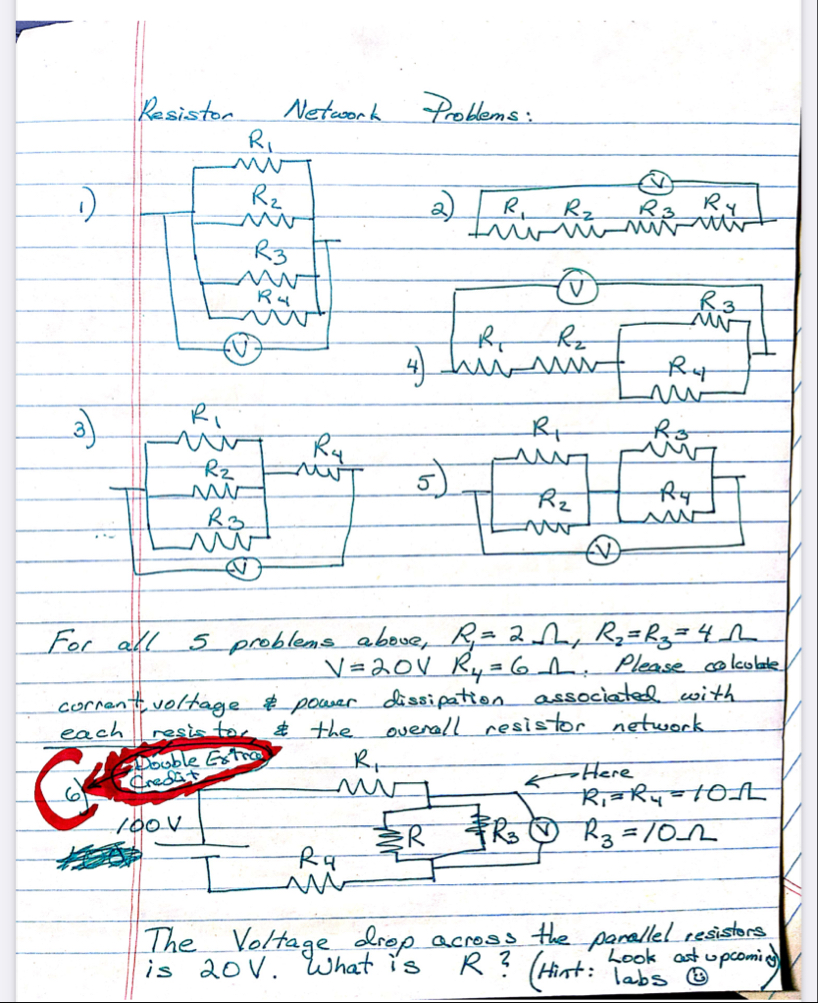 Resistor Network Problems:
1)
R1
R2
R3
R4
V
2)
R1 R2 R3 R4
V
3)
R1
R2
R3
R4
V
4)
R1 R2
R3
R4
V
5)
R1
R2
R3
R4
V
For all 5 problems above, R1 = 2 Ω, R2 = R3 = 4 Ω
V = 20V R4 = 6 Ω. Please calculate
current, voltage & power dissipation associated with
each resistor & the overall resistor network
6) Double Extra
Credit
100 V
R1
R
R3
V
R4
Here
R1 = R4 = 10 Ω
R3 = 10 Ω
The Voltage drop across the parallel resistors
is 20V. What is R? (Hint: Look at upcoming
labs ☺)